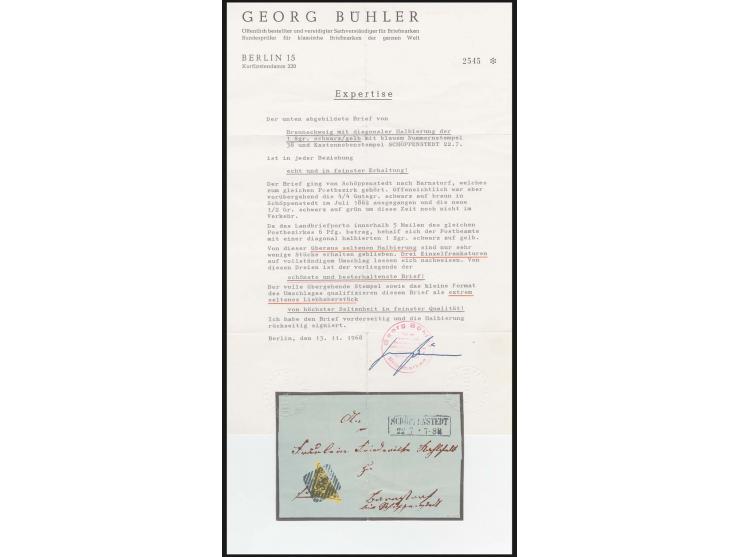 GEORG BÜHLER
Öffentlich bestellter und vereidigter Sachverständiger für Briefmarken
Bundesprüfer für klassische Briefmarken der ganzen Welt
BERLIN 15
Kurfürstendamm 220
2545 ✻
Expertise
Der unten abgebildete Brief von
Braunschweig mit diagonaler Halbierung der
1 Sgr. schwarz/gelb mit blauem Nummernstempel
38 und Kastennebenstempel SCHÖPPENSTEDT 22.7.
ist in jeder Beziehung
echt und in feinster Erhaltung!
Der Brief ging von Schöppenstedt nach Barnstorf, welches
zum gleichen Postbezirk gehört. Offensichtlich war aber
vorübergehend die 4/4 Gutegr. schwarz auf braun in
Schöppenstedt im Juli 1862 ausgegangen und die neue
1/2 Gr. schwarz auf grün um diese Zeit noch nicht im
Verkehr.
Da das Landbriefporto innerhalb 5 Meilen des gleichen
Postbezirkes 6 Pfg. betrug, behalf sich der Postbeamte
mit einer diagonal halbierten 1 Sgr. schwarz auf gelb.
Von dieser überaus seltenen Halbierung sind nur sehr
wenige Stücke erhalten geblieben. Drei Einzelfrankaturen
auf vollständigem Umschlag lassen sich nachweisen. Von
diesen Dreien ist der vorliegende der
schönste und besterhaltenste Brief!
Der volle übergehende Stempel sowie das kleine Format
des Umschlages qualifizieren diesen Brief als extrem
seltenes Liebhaberstück
von höchster Seltenheit in feinster Qualität!
Ich habe den Brief vorderseitig und die Halbierung
rückseitig signiert.
Berlin, den 13. 11. 1968
Georg Bühler
SCHÖPPENSTEDT
22 7 7-8
An
Fräulein Friederike
zu
Barnstorf
bei Schöppenstedt